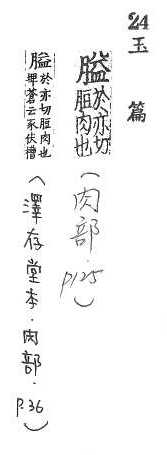 24
玉篇
膉於亦切
脰肉也
(肉部.P.125)
膉於亦切脰肉也
埤蒼云豕伏槽
(澤存堂本.肉部.P.36)